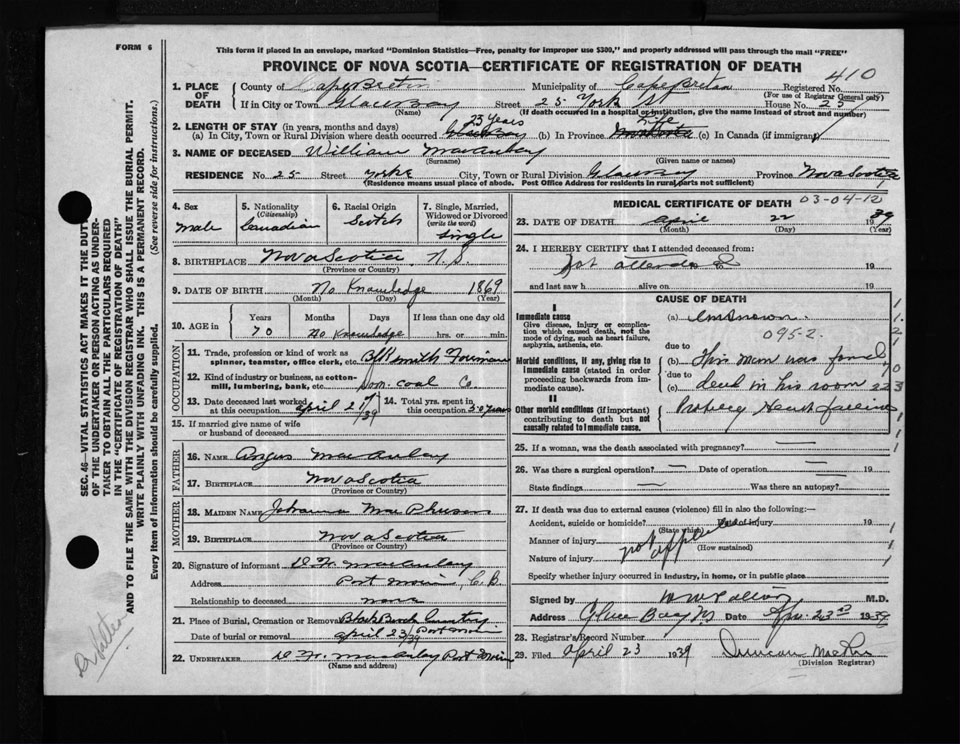 FORM 6
This form if placed in an envelope, marked "Dominion Statistics—Free, penalty for improper use $300," and properly addressed will pass through the mail "FREE"
PROVINCE OF NOVA SCOTIA—CERTIFICATE OF REGISTRATION OF DEATH
410
1. PLACE OF DEATH
County of Cape Breton Municipality of Cape Breton Registered No.
(For use of Registrar General only)
If in City or Town Glace Bay Street 25 York St House No. 25
(Name) (If death occurred in a hospital or institution, give the name instead of street and number)
2. LENGTH OF STAY (in years, months and days)
23 Years Life
(a) In City, Town or Rural Division where death occurred Glace Bay (b) In Province (c) In Canada (if immigrant)
3. NAME OF DECEASED William MacAulay
(Surname) (Given name or names)
RESIDENCE No. 25 Street Yorke City, Town or Rural Division Glace Bay Province Nova Scotia
(Residence means usual place of abode. Post Office Address for residents in rural parts not sufficient)
4. Sex
Male
5. Nationality
(Citizenship)
Canadian
6. Racial Origin
Scotch
7. Single, Married, Widowed or Divorced
(write the word)
Single
8. BIRTHPLACE Nova Scotia, N.S.
(Province or Country)
9. DATE OF BIRTH No Knowledge 1869
(Month) (Day) (Year)
10. AGE in
Years Months Days If less than one day old
70 No Knowledge hrs. or min.
OCCUPATION
11. Trade, profession or kind of work as spinner, teamster, office clerk, etc. Blksmith Foreman
12. Kind of industry or business, as cotton-mill, lumbering, bank, etc. Dom. Coal Co.
13. Date deceased last worked at this occupation April 21st/39
14. Total yrs. spent in this occupation 50 years
15. If married give name of wife or husband of deceased
FATHER
16. NAME Angus MacAulay
17. BIRTHPLACE Nova Scotia
(Province or Country)
MOTHER
18. MAIDEN NAME Johanna MacPherson
19. BIRTHPLACE Nova Scotia
(Province or Country)
20. Signature of informant MacAulay
Address Port Morien, C.B.
Relationship to deceased none
21. Place of Burial, Cremation or Removal Black Brook Cemetery
Date of burial or removal April 23/39 Port Morien
22. UNDERTAKER MacAulay Port Morien
(Name and address)
MEDICAL CERTIFICATE OF DEATH
03-04-12
23. DATE OF DEATH April 22 1939
(Month) (Day) (Year)
24. I HEREBY CERTIFY that I attended deceased from:
Not attended 19
and last saw h alive on 19
CAUSE OF DEATH
I
Immediate cause
Give disease, injury or complication which caused death, not the mode of dying, such as heart failure, asphyxia, asthenia, etc.
(a) Unknown
095-2
due to
Morbid conditions, if any, giving rise to immediate cause (stated in order proceeding backwards from immediate cause).
(b) This man was found
due to
(c) dead in his room
II
Other morbid conditions (if important) contributing to death but not causally related to immediate cause.
Probably Heart failure
25. If a woman, was the death associated with pregnancy? —
26. Was there a surgical operation? — Date of operation — 19
State findings — Was there an autopsy?
27. If death was due to external causes (violence) fill in also the following:—
Accident, suicide or homicide? Date of injury 19
(State which)
Manner of injury
(How sustained)
Nature of injury not applicable
Specify whether injury occurred in industry, in home, or in public place
Signed by M.D.
Address Glace Bay NS Date Apr. 23rd 1939
28. Registrar's Record Number
29. Filed April 23 1939 Duncan
(Division Registrar)
SEC. 46—VITAL STATISTICS ACT MAKES IT THE DUTY
OF THE UNDERTAKER OR PERSON ACTING AS UNDER-
TAKER TO OBTAIN ALL THE PARTICULARS REQUIRED
IN THE "CERTIFICATE OF REGISTRATION OF DEATH"
AND TO FILE THE SAME WITH THE DIVISION REGISTRAR WHO SHALL ISSUE THE BURIAL PERMIT.
WRITE PLAINLY WITH UNFADING INK. THIS IS A PERMANENT RECORD.
Every item of Information should be carefully supplied. (See reverse side for instructions.)